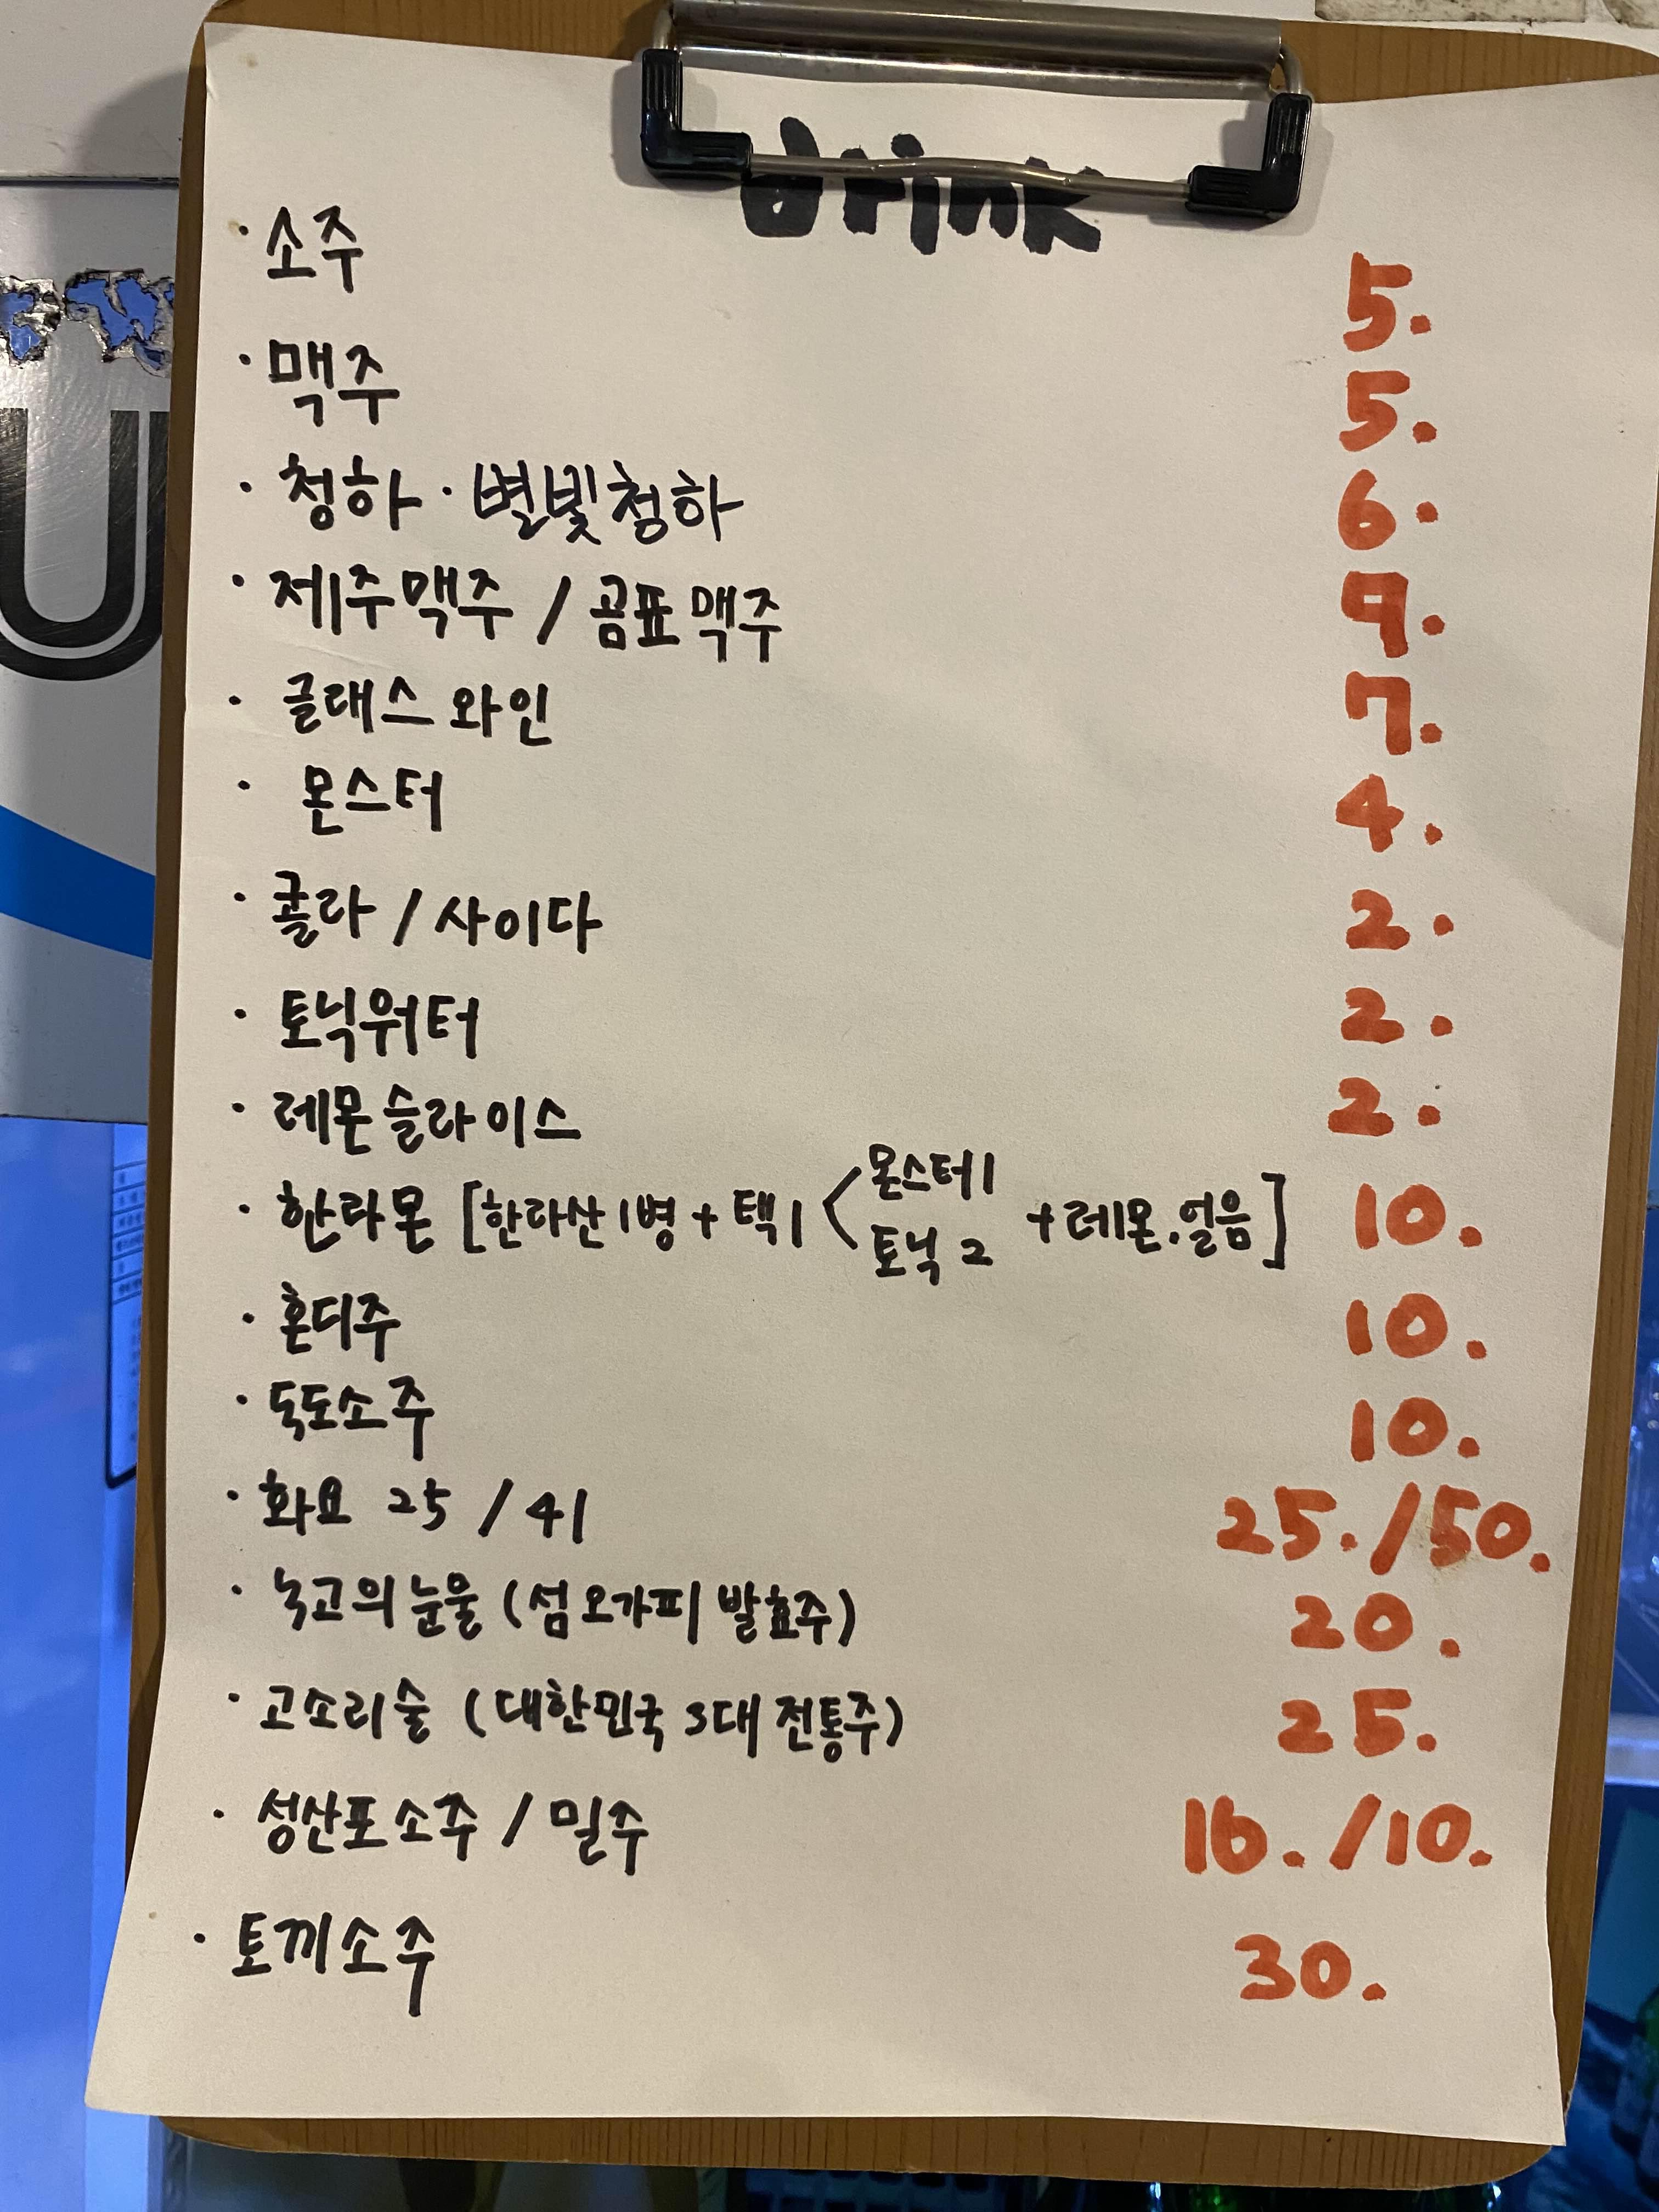 drink
· 소주 5.
· 맥주 5.
· 청하 · 별빛청하 6.
· 제주맥주 / 곰표맥주 9.
· 글래스 와인 7.
· 몬스터 4.
· 콜라 / 사이다 2.
· 토닉워터 2.
· 레몬슬라이스 2.
· 한라몬 [한라산1병 + 택1 < 몬스터1 토닉2 + 레몬.얼음] 10.
· 혼디주 10.
· 독도소주 10.
· 화요 25 / 41 25. / 50.
· 녹고의눈물 (섬오가피 발효주) 20.
· 고소리술 (대한민국 3대 전통주) 25.
· 성산포소주 / 밀주 16. / 10.
· 토끼소주 30.
U